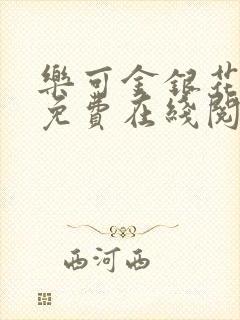 樂可金銀花
免費在綫閱
西河西